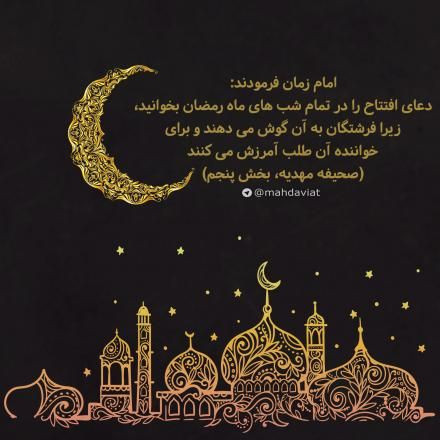 امام زمان فرمودند:
دعای افتتاح را در تمام شب های ماه رمضان بخوانید،
زیرا فرشتگان به آن گوش می دهند و برای
خواننده آن طلب آمرزش می کنند
(صحیفه مهدیه، بخش پنجم)
@mahdaviat